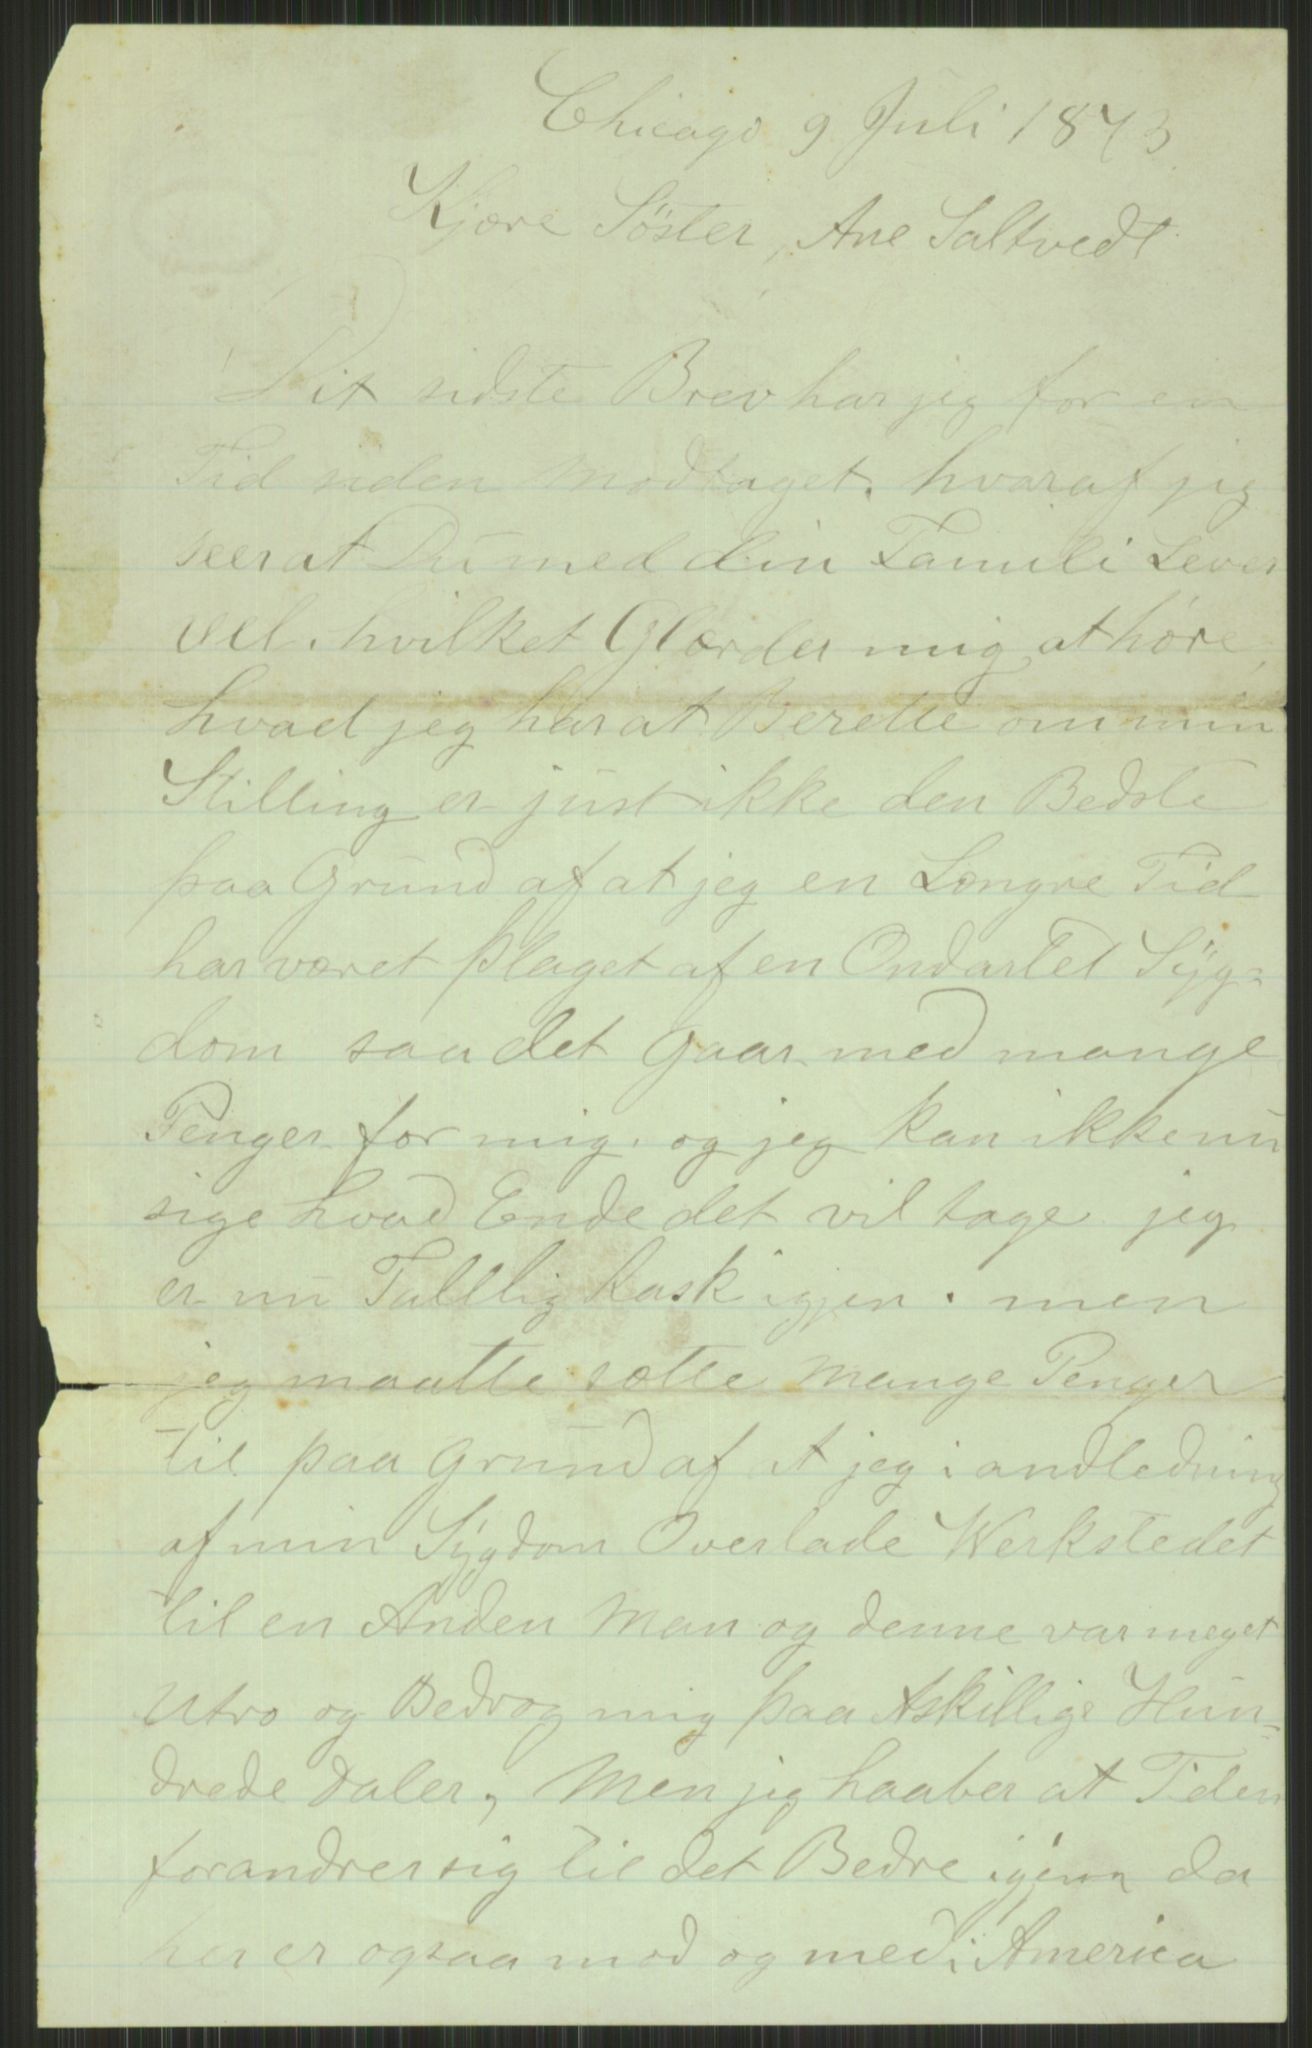 Chicago 9 Juli 1873
Kjære Söster, Ane Saltvedt
Dit sidste Brev har jeg for en
Tid siden Modtaget. hvoraf jeg
seer at Du med din Famili Lever
vel. hvilket Glæder mig at höre,
hvad jeg har at Berette om min
Stilling er just ikke den Bedste
paa Grund af at jeg en Længre Tid
har været Plaget af en Ondartet Syg=
dom saa det Gaar med mange
Penger for mig. og jeg kan ikke nu
sige hvad Ende det vil tage jeg
er nu Rask igjen. men
jeg maatte sætte Mange Penger
til paa Grund af at jeg i andledning
af min Sygdom Overlade Werkstedet
til en Anden Man og denne var meget
Utro og Bedrog mig paa Atskillige Hun=
drede Daler, Men jeg haaber at Tiden
forandrer sig til det Bedre igjenn da
her er ogsaa mod og med i America